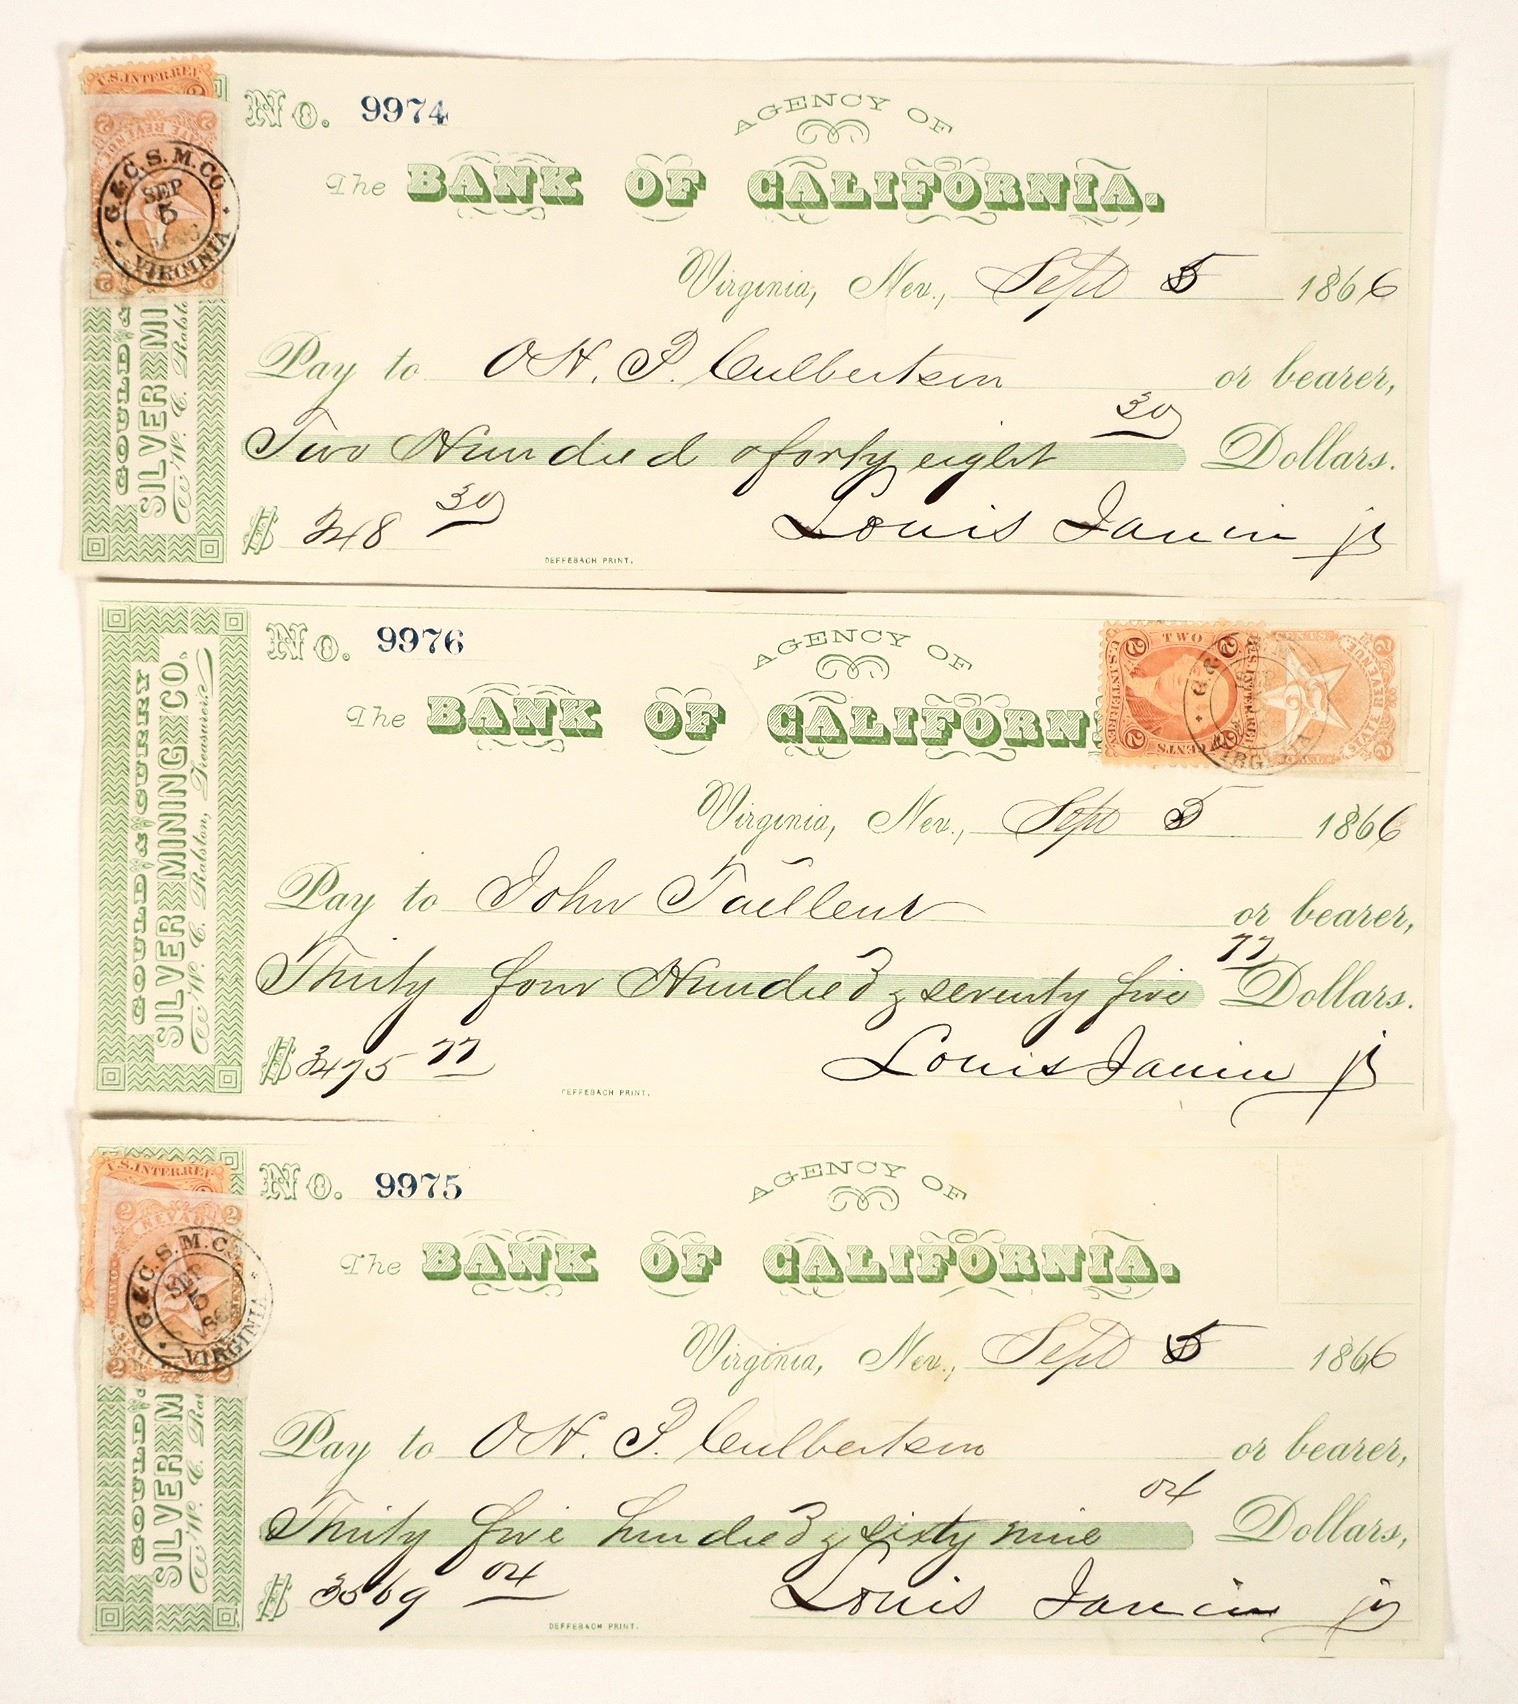 U.S.INTER.REV.
No. 9974
AGENCY OF
The BANK OF CALIFORNIA.
G. & C. S. M. CO.
SEP
5
VIRGINIA
Virginia, Nev., Sept 5 1866
Pay to O.H.P. Culbertson or bearer,
Two Hundred & forty eight 30 Dollars.
$ 248 30
Louis Janin jr
DEFFEBACH PRINT.
GOULD &
SILVER MI
W. C. Ralsto
No. 9976
AGENCY OF
The BANK OF CALIFORN
TWO
2 2
U.S.INTER.REV.
2 CENTS 2
G. &
VIRGINIA
REVENUE
Virginia, Nev., Sept 5 1866
Pay to John Tailleur or bearer,
Thirty four Hundred & seventy five 77 Dollars.
$ 3475 77
Louis Janin jr
DEFFEBACH PRINT.
GOULD & CURRY
SILVER MINING CO.
To W. C. Ralston, Treasurer
U.S.INTER.REV.
No. 9975
AGENCY OF
The BANK OF CALIFORNIA.
2 NEVADA 2
G. & C. S. M. C
SEP
VIRGINIA
Virginia, Nev., Sept 5 1866
Pay to O.H.P. Culbertson or bearer,
Thirty five hundred & sixty nine 04 Dollars,
$ 3569 04
Louis Janin jr
DEFFEBACH PRINT.
GOULD &
SILVER M
W. C. Ral